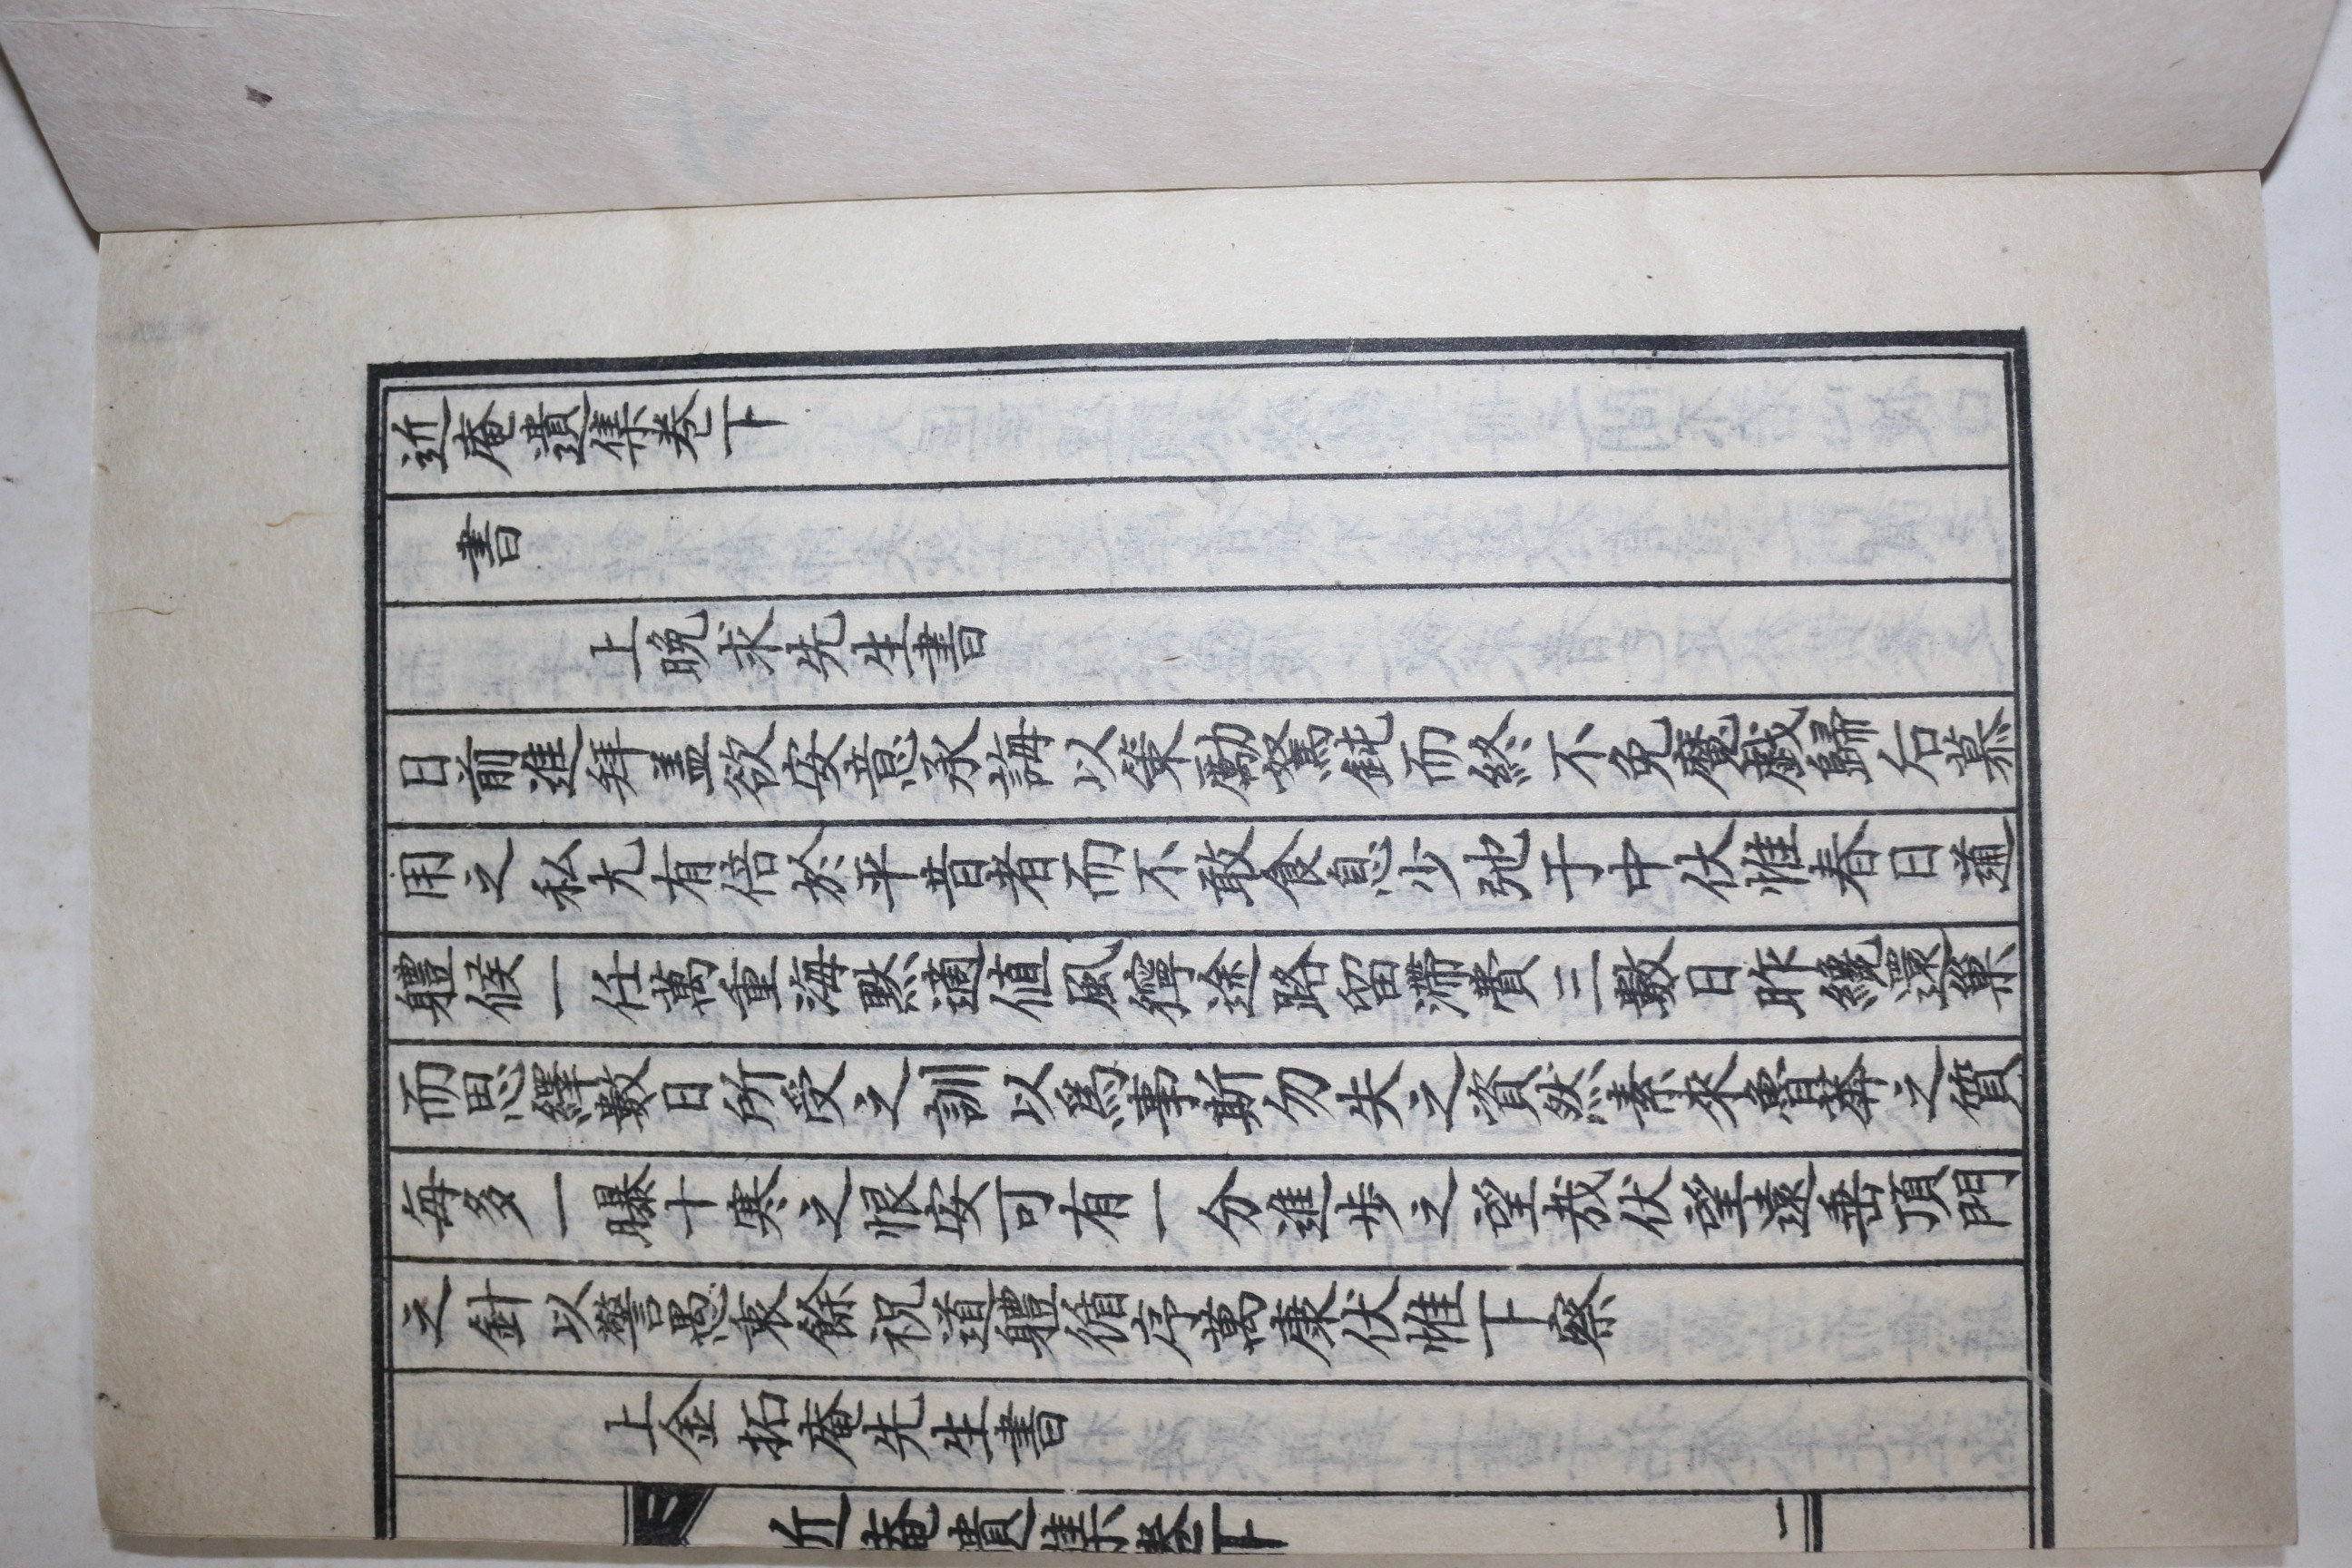 近庵遺集卷下
書
上晚求先生書
日前進拜盖欲安意承誨以策勵駑鈍而終不免魔戱歸后慕
用之私尤有倍於平昔者而不敢食息少弛于中伏惟春日道
軆候一任萬重海黙適値風獰途路留滯費三數日昨纔還巢
而思繹數日所受之訓以爲事斯勿失之資然素來魯莾之質
每多一曝十寒之恨安可有一分進步之望哉伏望遠垂頂門
之針以警愚衷餘祝道軆循序萬康伏惟下察
上金拓庵先生書
近庵遺集卷下
一